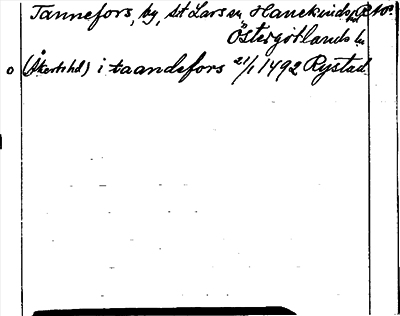 Tannefors, by, St Lars sn, Hanekinds hd
Östergötlands l.
o (Åkerbo hd) i taandefors 21/1 1492 Rystad